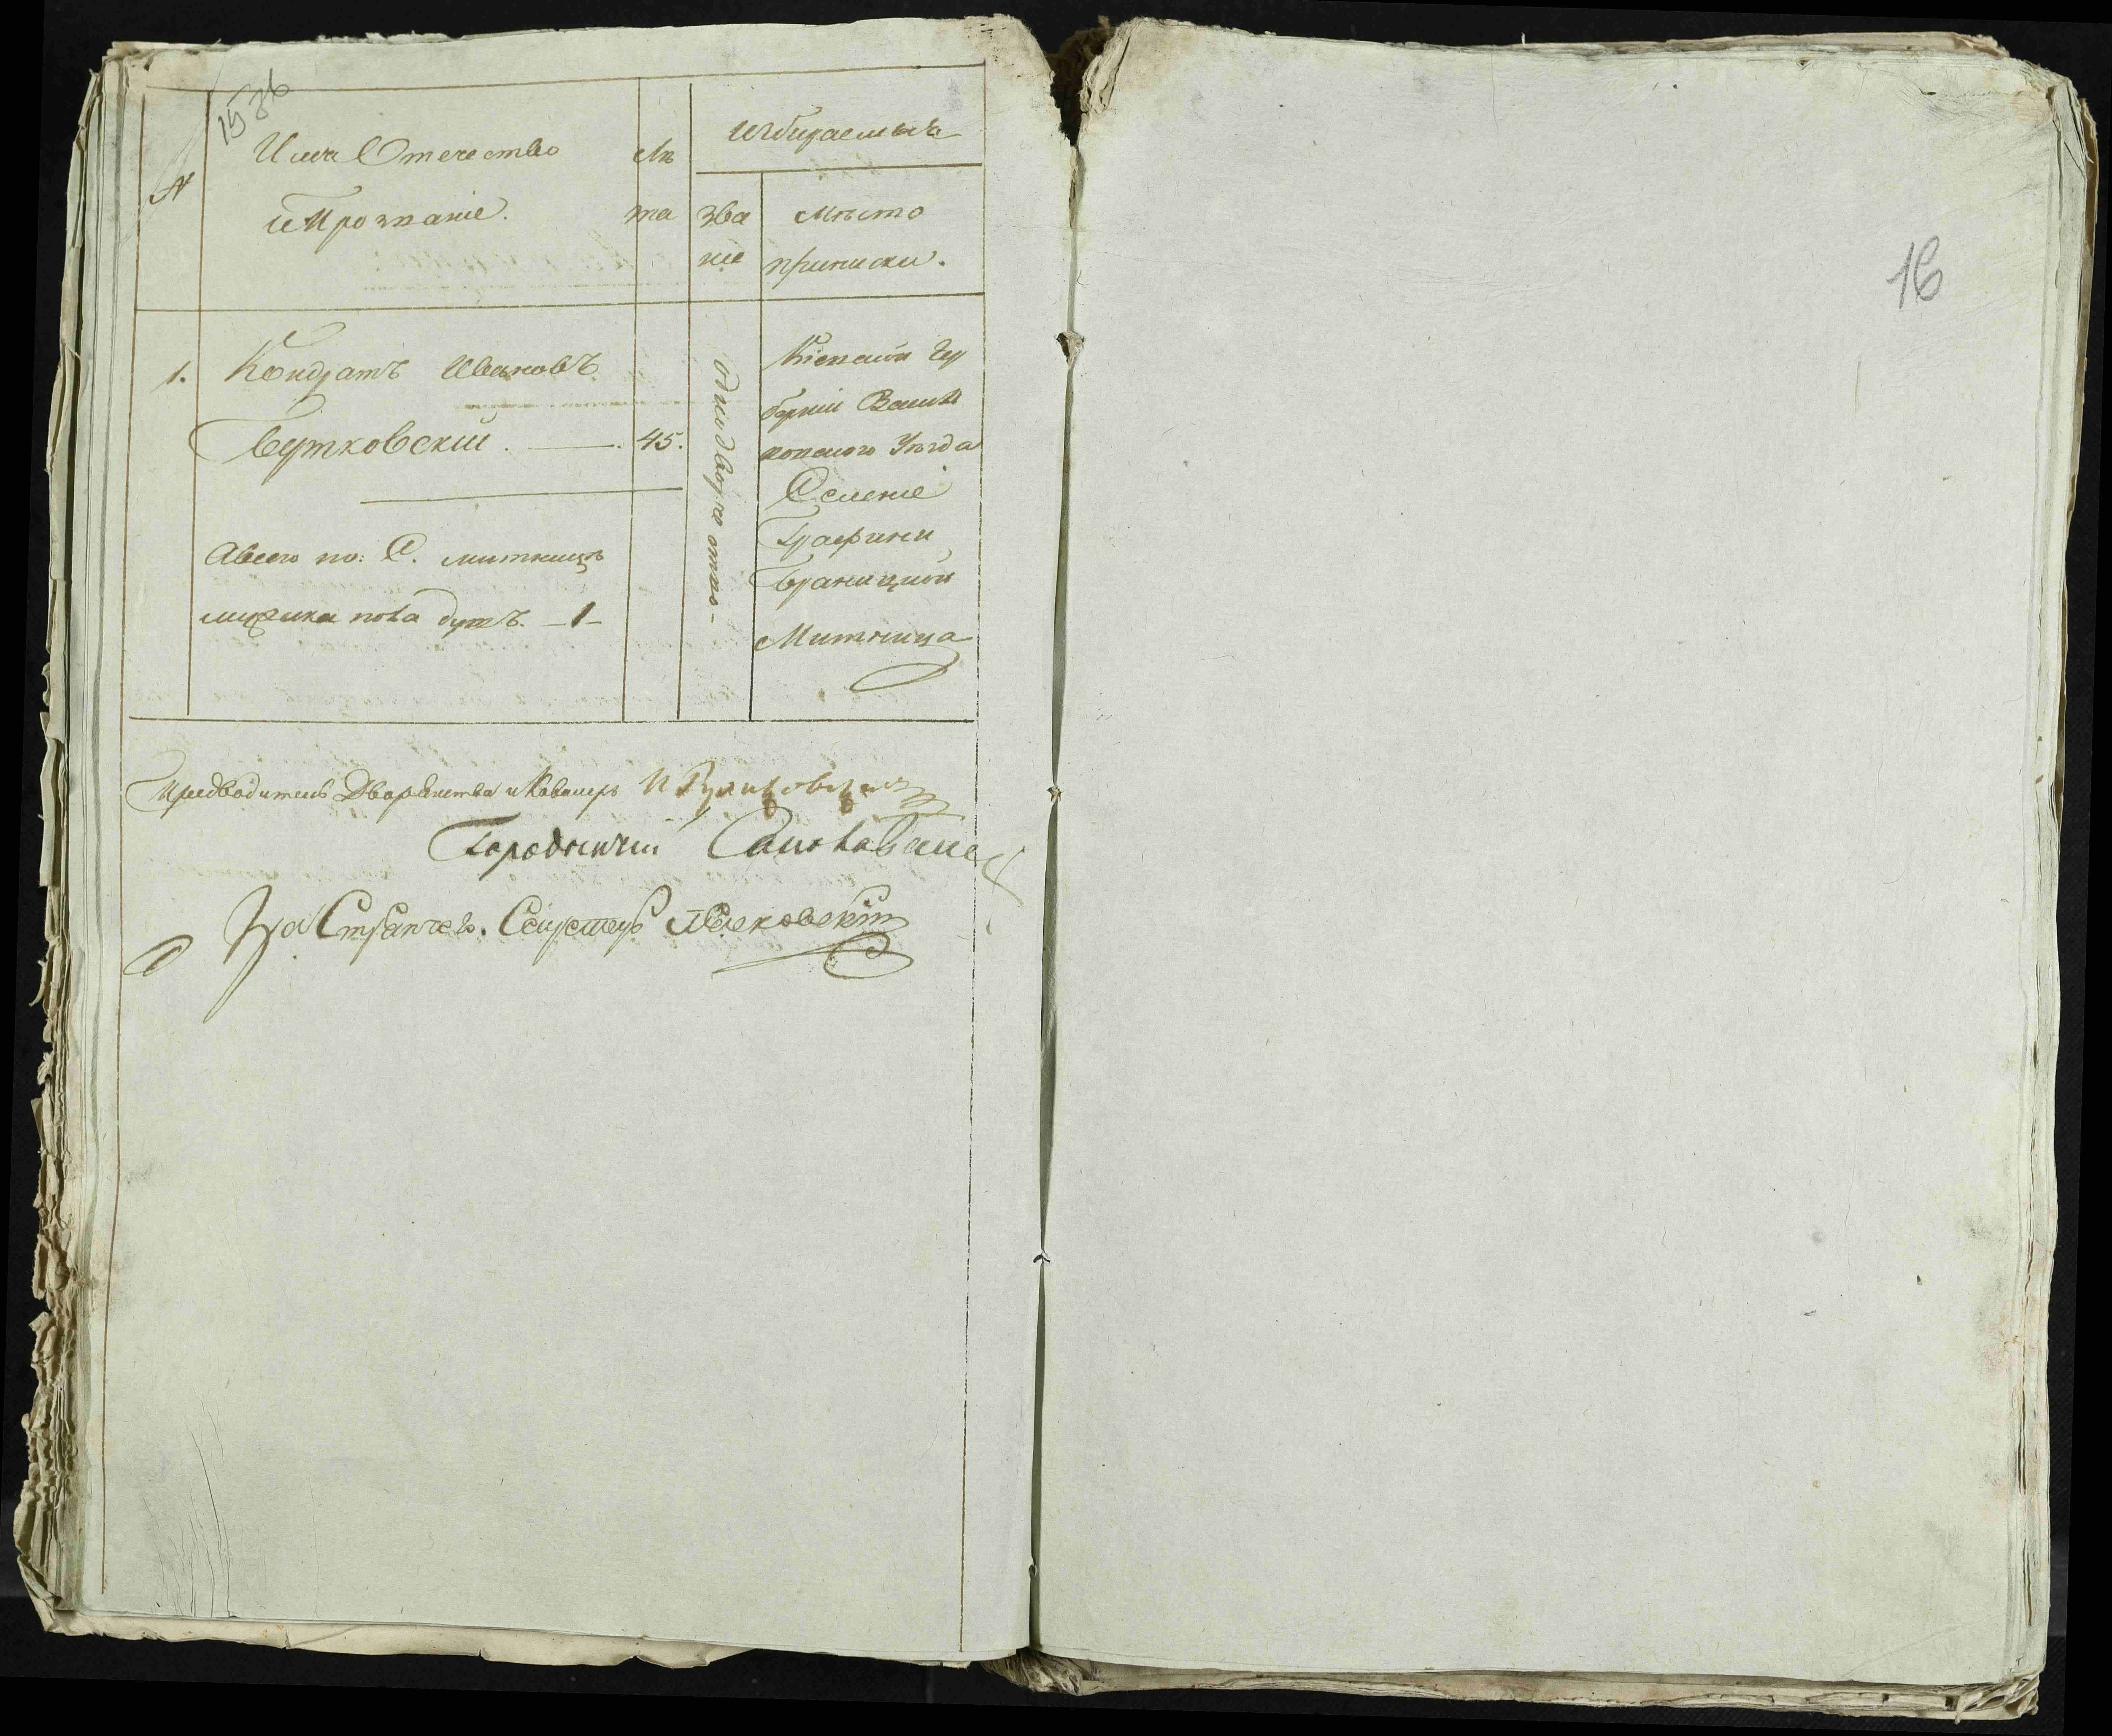 15об
N
Имя Отечество
и Прозваніе.
лѣ
та
Избираемыя
зва
ніе
Мѣсто
приписки.
1.
Кондратъ Ивановъ
Бутковскій . — . 45.
однодворческо-
Кіевской Гу
берніи Василь
ковского Уѣзда
Селеніе
Графини
Браницкой
Митница
Авсего по: С. митницѣ
мужска пола душъ. – 1 –
Предводитель Дворянства и Кавалеръ
Городничій
За Стряпчего. Секретарь
16